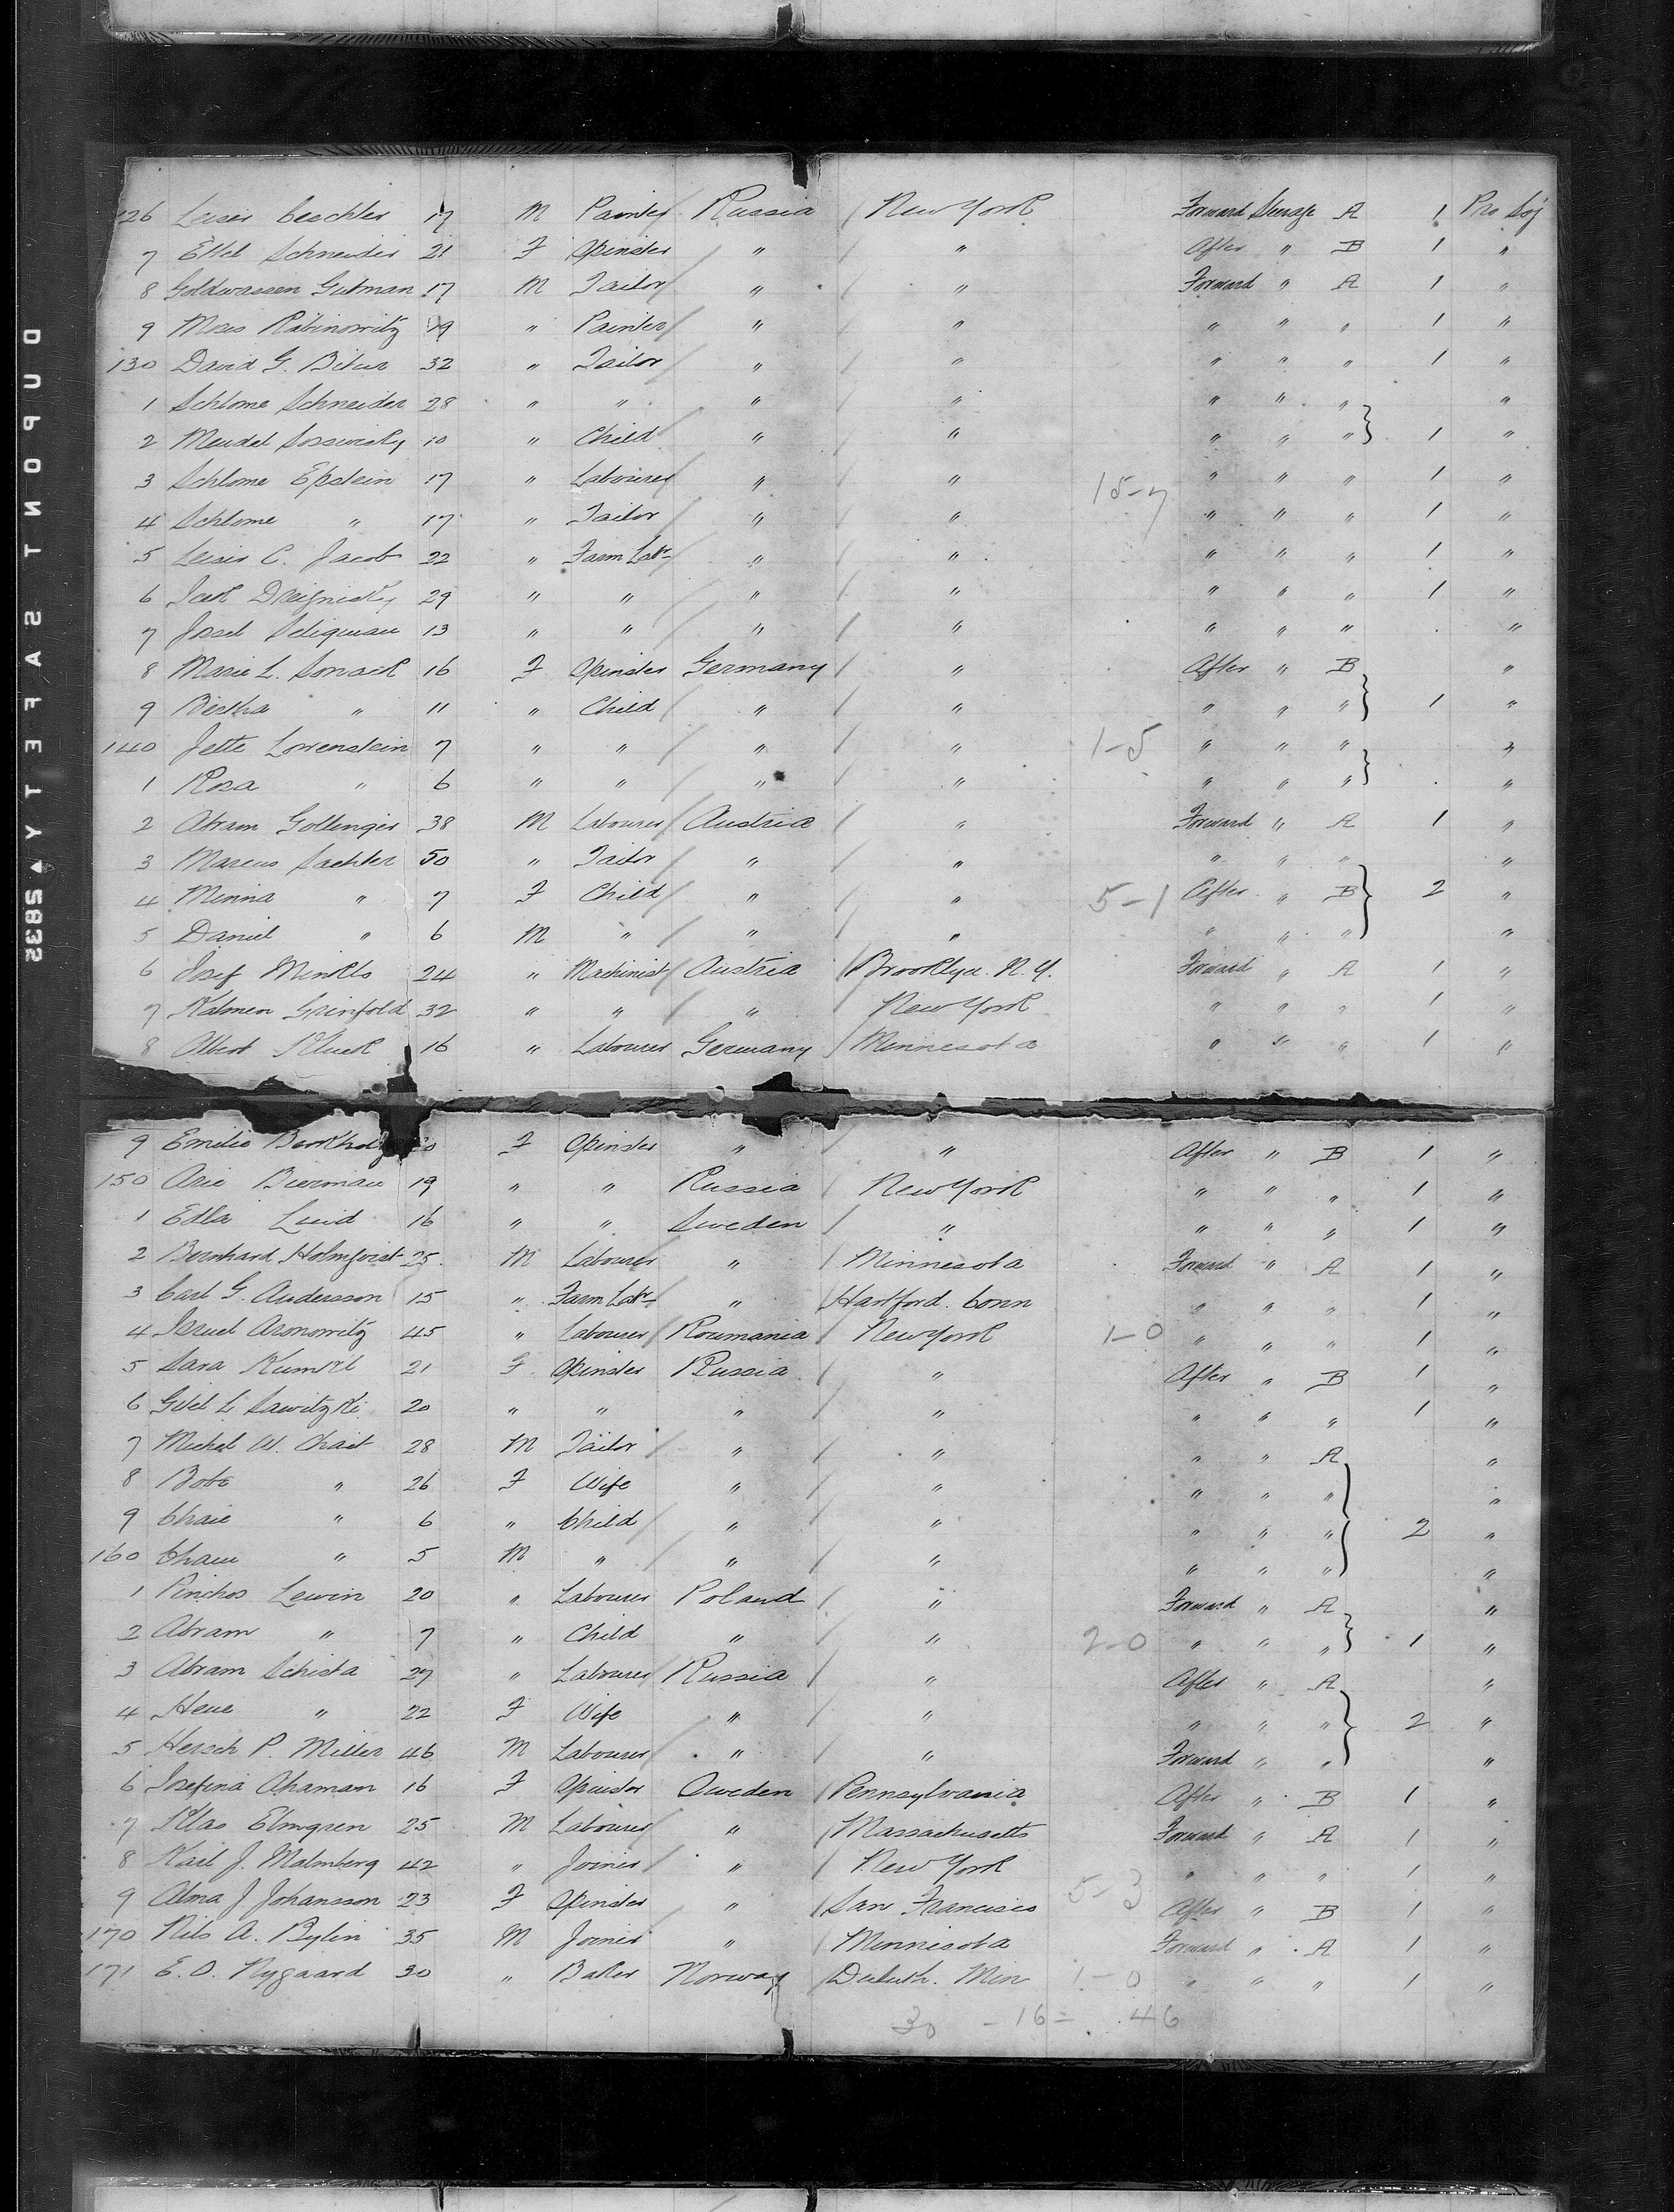 126 Leiser Beechler 17 M Painter Russia New York Forward Steerage A 1 Pro Soj
7 Ettel Schneider 21 F Spinster " " After " B 1 "
8 Goldwassen Gutman 17 M Tailor " " Forward " A 1 "
9 Moses Rabinowitz 19 " Painter " " " " " 1 "
130 David G. 32 " Tailor " " " " " 1 "
1 Schlome Schneider 28 " " " " " " " "
2 Mendel 10 " Child " " " " " 1 "
3 Schlome Epstein 17 " Labourer " " " " " 1 "
15-7
4 Schlome " 17 " Tailor " " " " " 1 "
5 Leiser C. Jacob 22 " Farm Labr " " " " " 1 "
6 29 " " " " " " " 1 "
7 Josel Seligman 13 " " " " " " " "
8 Marie L. 16 F Spinster Germany " After " B "
9 Bertha " 11 " Child " " " " " 1 "
140 Jette Lowenstein 7 " " " " 1-5 " " " "
1 Rosa " 6 " " " " " " " "
2 Abram Gollenger 38 M Labourer Austria " Forward " A 1 "
3 Marcus Sachler 50 " Tailor " " " " " "
4 Minna " 7 F Child " " 5-1 After " B 2 "
5 Daniel " 6 M " " " " " " "
6 Josef 24 " Machinist Austria Brooklyn. N.Y. Forward " A 1 "
7 Kalmen Grinfeld 32 " " " New York " " " 1 "
8 Albert Kluck 16 " Labourer Germany Minnesota " " " 1 "
9 Emilie F Spinster " " After " B 1 "
150 Arie Bierman 19 " " Russia New York " " " 1 "
1 Edla Lund 16 " " Sweden " " " " 1 "
2 Bernhard Holmqvist 25 M Labourer " Minnesota Forward " A 1 "
3 Carl G. Andersson 15 " Farm Labr " Hartford. Conn " " " 1 "
4 Israel Aronowitz 45 " Labourer Roumania New York 1-0 " " " 1 "
5 Sara 21 F Spinster Russia " After " B 1 "
6 Gitel L. Sawitzki 20 " " " " " " " 1 "
7 Michel W. Chait 28 M Tailor " " " " A "
8 Bobe " 26 F Wife " " " " " "
9 Chaie " 6 " Child " " " " " 2 "
160 Chaim " 5 M " " " " " " "
1 Pinchos Lewin 20 " Labourer Poland " Forward " A "
2 Abram " 7 " Child " " 2-0 " " " 1 "
3 Abram Schista 27 " Labourer Russia " After " A "
4 Hene " 22 F Wife " " " " " 2 "
5 Hersch P. Miller 46 M Labourer " " Forward " " "
6 Josefina Ahaman 16 F Spinster Sweden Pennsylvania After " B 1 "
7 Klas Elmgren 25 M Labourer " Massachusetts Forward " A 1 "
8 Karl J. Malmberg 42 " Joiner " New York " " " 1 "
5-3
9 Alma J Johansson 23 F Spinster " San Francisco After " B 1 "
170 Nils A. Bylin 35 M Joiner " Minnesota Forward " A 1 "
171 E. O. Nygaard 30 " Baker Norway Duluth. Min 1-0 " " " 1 "
30 - 16 = 46
DUPONT SAFETY 2835